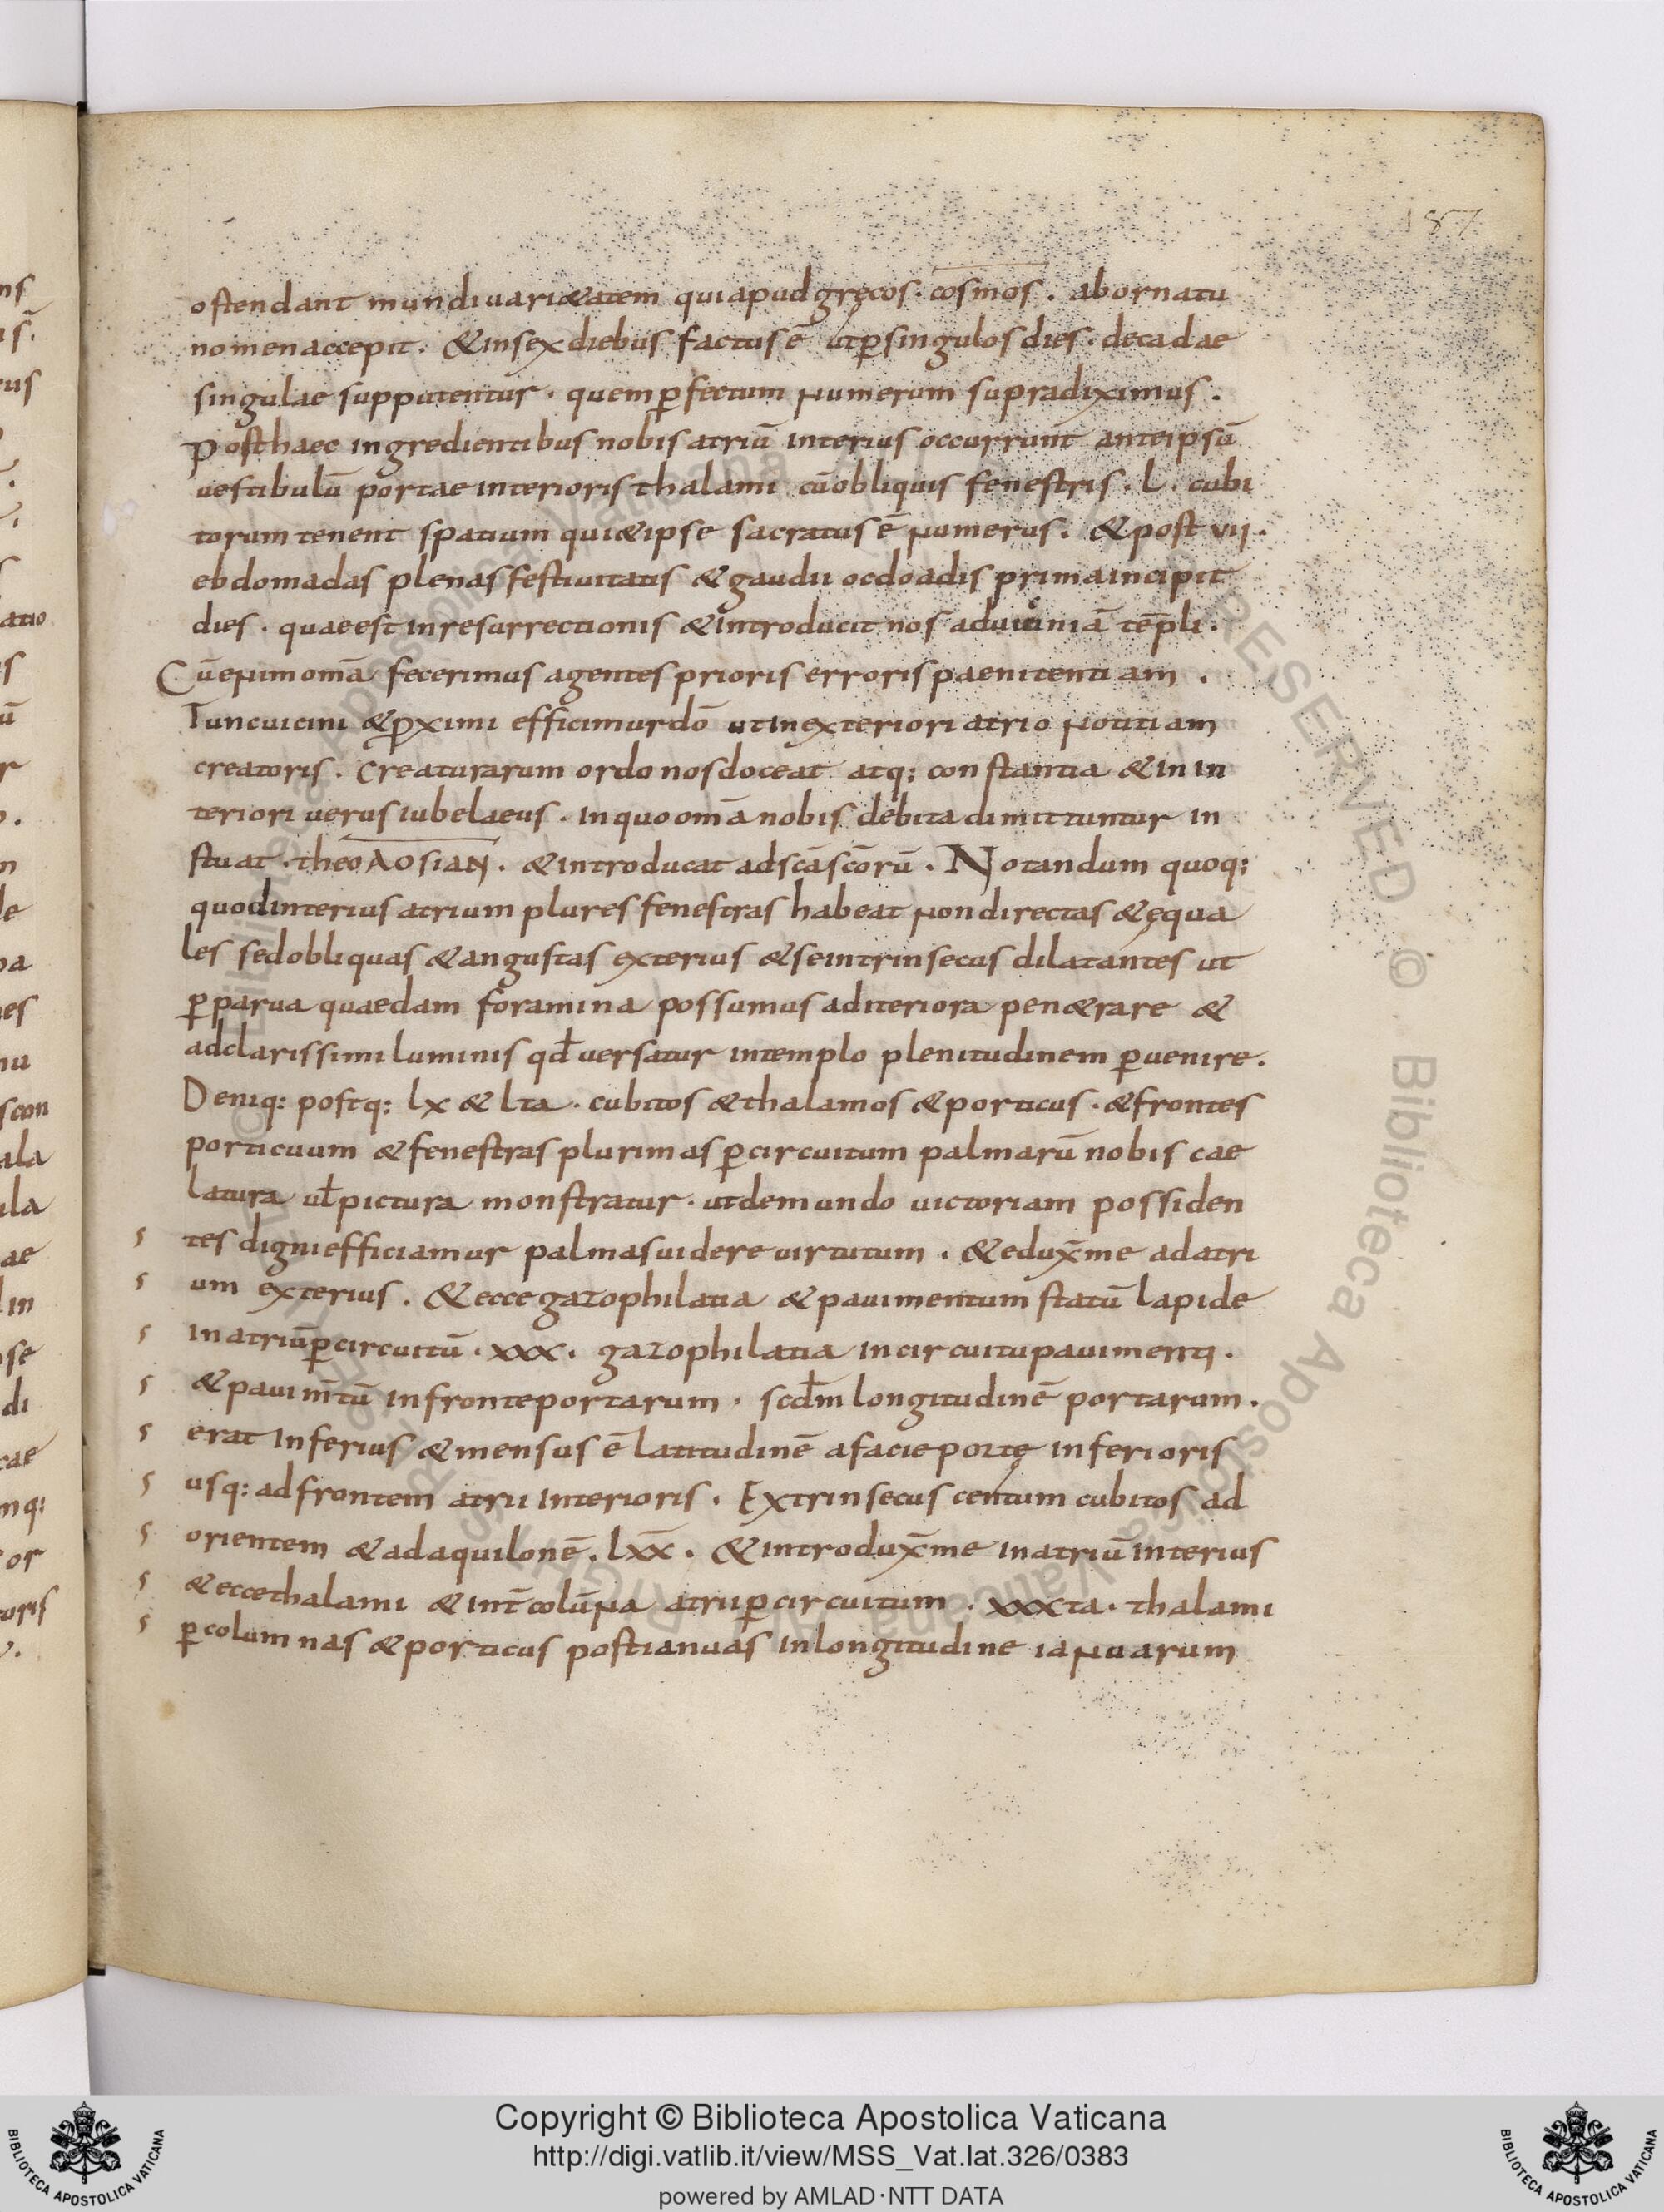 187
ostendant mundi uari&atem qui apud gręcos · cosmos . ab ornatu
nomen accepit . & in sex diebus factus ē ut p̱ singulos dies · decadae
singulae supputentur · quem p̱fectum numerum supra diximus .
Post haec ingredientibus nobis atriū interius occurrunt ante ipsū
uestibulū portae interioris thalami cū obliquis fenestris . L . cubi
torum tenent spatium qui & ipse sacratus ē numerus . & post vii .
ebdomadas plenas festiuitatis & gaudii ocdoadis prima incipit
dies . quae est in resurrectionis & introducit nos ad uiciniā tēpli .
Cū enim om̄a fecerimus agentes prioris erroris paenitentiam .
Tunc uicini & p̱ximi efficimur dō ut in exteriori atrio notitiam
creatoris . Creaturarum ordo nos doceat atq; constantia & in in
teriori uerus iubelaeus . in quo om̄a nobis debita dimittuntur in
stuat · theoΛosian . & introducat ad sc̄a sc̄orū . Notandum quoq;
quod interius atrium plures fenestras habeat non directas & ęqua
les sed obliquas & angustas exterius & se intrinsecus dilatantes ut
p̱ parua quaedam foramina possumus ad iteriora pen&rare &
ad clarissimi luminis qd̄ uersatur in templo plenitudinem p̱uenire .
Deniq; postq; lx & lta . cubitos & thalamos & porticus . & frontes
porticuum & fenestras plurimas p̱ circuitum palmarū nobis cae
latura ul̄ pictura monstratur . ut de mundo uictoriam possiden
tes digni efficiamur palmas uidere uirtutum . & edux̄ me ad atri
um exterius . & ecce gazophilatia & pauimentum statū lapide
in atriū p̱ circuitū . xxx . gazophilatia in circuitu pauimenti .
& pauim̄tū in fronte portarum . scd̄m longitudinē portarum .
erat inferius & mensus ē latitudinē a facie portę inferioris
usq; ad frontem atrii interioris . Extrinsecus centum cubitos ad
orientem & ad aquilonē . lxx . & introdux̄ me in atriū interius
& ecce thalami & int̄ colūna atrii p̱ circuitum . xxxta . thalami
p̱ columnas & porticus post ianuas in longitudine ianuarum
Copyright © Biblioteca Apostolica Vaticana
http://digi.vatlib.it/view/MSS_Vat.lat.326/0383
powered by AMLAD·NTT DATA
BIBLIOTECA APOSTOLICA VATICANA
BIBLIOTECA APOSTOLICA VATICANA